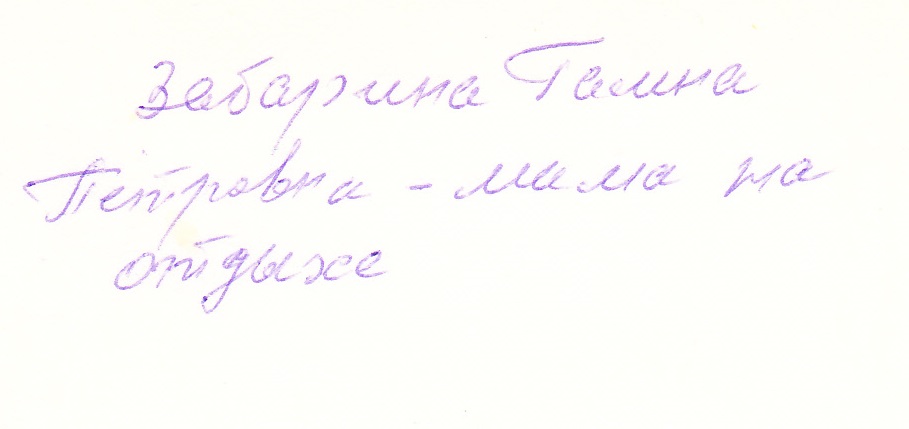 Забарина Галина
Петровна - мама на
отдыхе